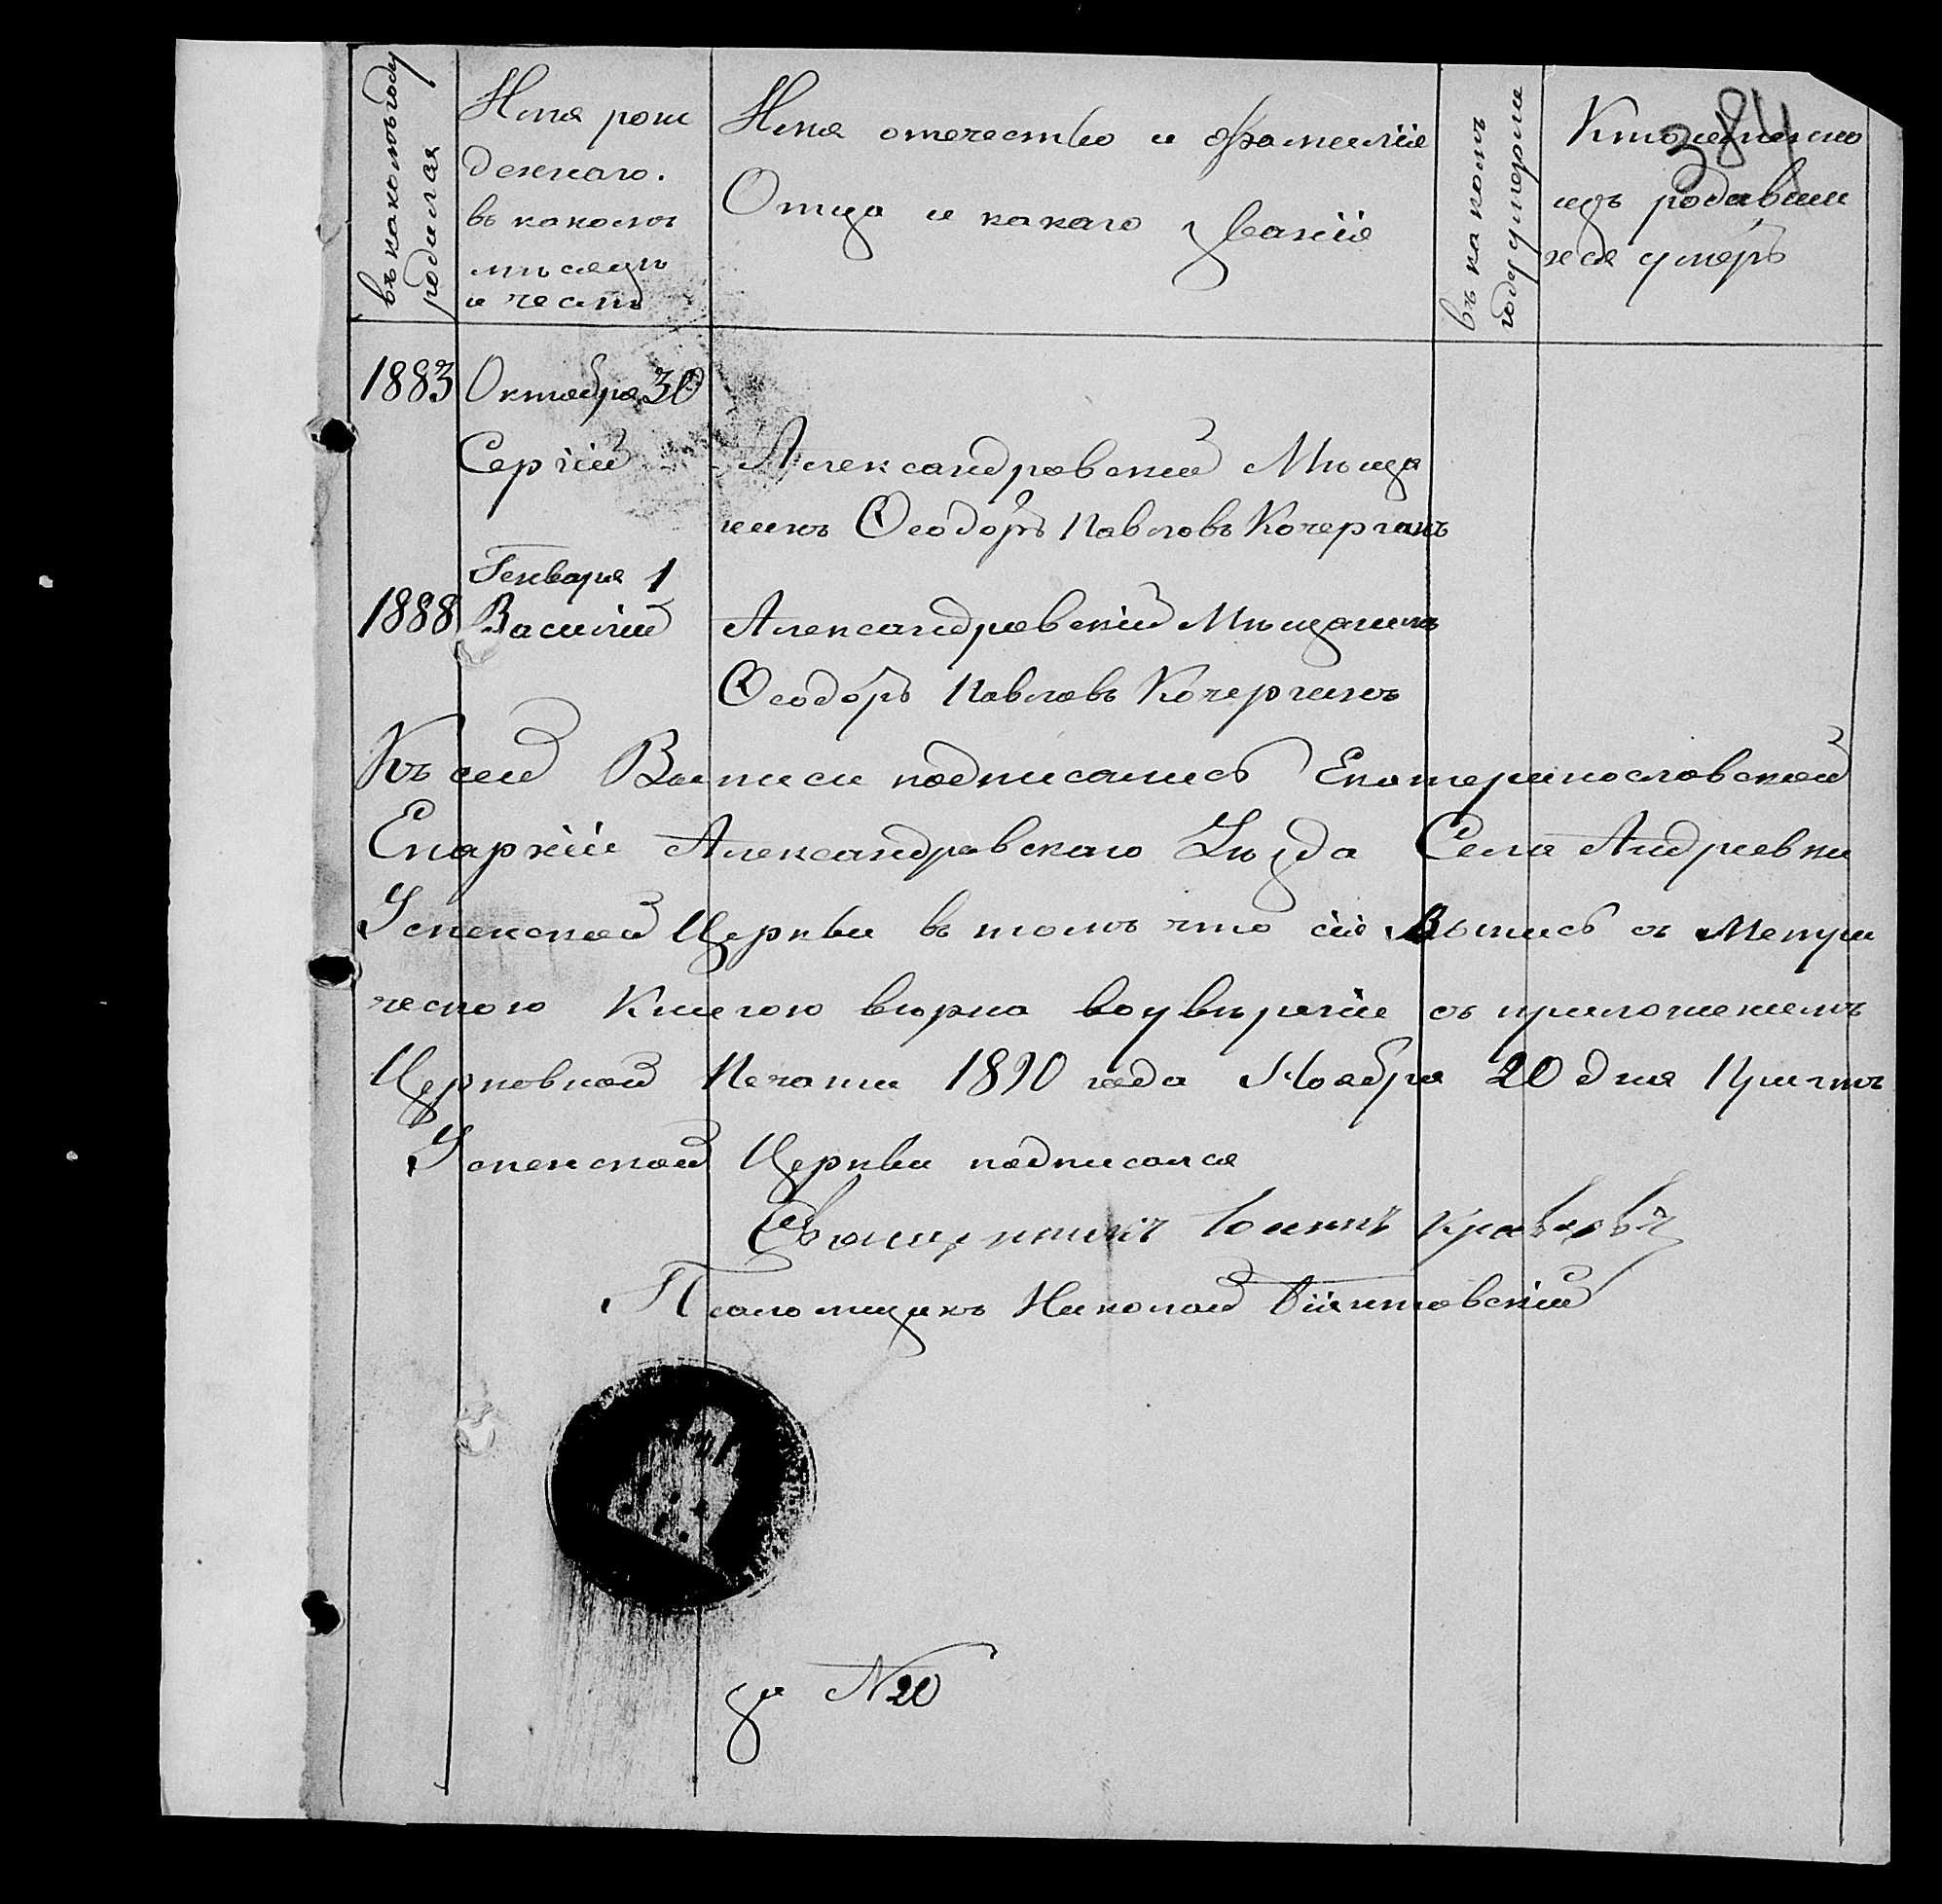 384
въ какомъ году
родился
Имя рож
деннаго.
въ какомъ
мѣсяцѣ
и числѣ
Имя отечество и фамилія
Отца и какаго званія
въ какомъ
году умерли
Кто именно
изъ родивши
хся умеръ
1883 Октября 30
Сергій Александровскій Мѣща
нинъ Ѳеодоръ Павловъ Кочергинъ
Генваря 1
1888 Василій Александровскій Мѣщанинъ
Ѳеодоръ Павловъ Кочергинъ
Къ сей Выписи подписались Екатеринославской
Епархіи Александровскаго Уѣзда Села Андревки
Успенской Церкви въ томъ что сія Выпись съ Метри
ческою Книгою вѣрна съ приложениемъ
Церковной Печати 1890 года Ноября 20 дня Причтъ
Успенской Церкви подписался
Священникъ Іоаннъ
Псаломщикъ Николай
за № 20